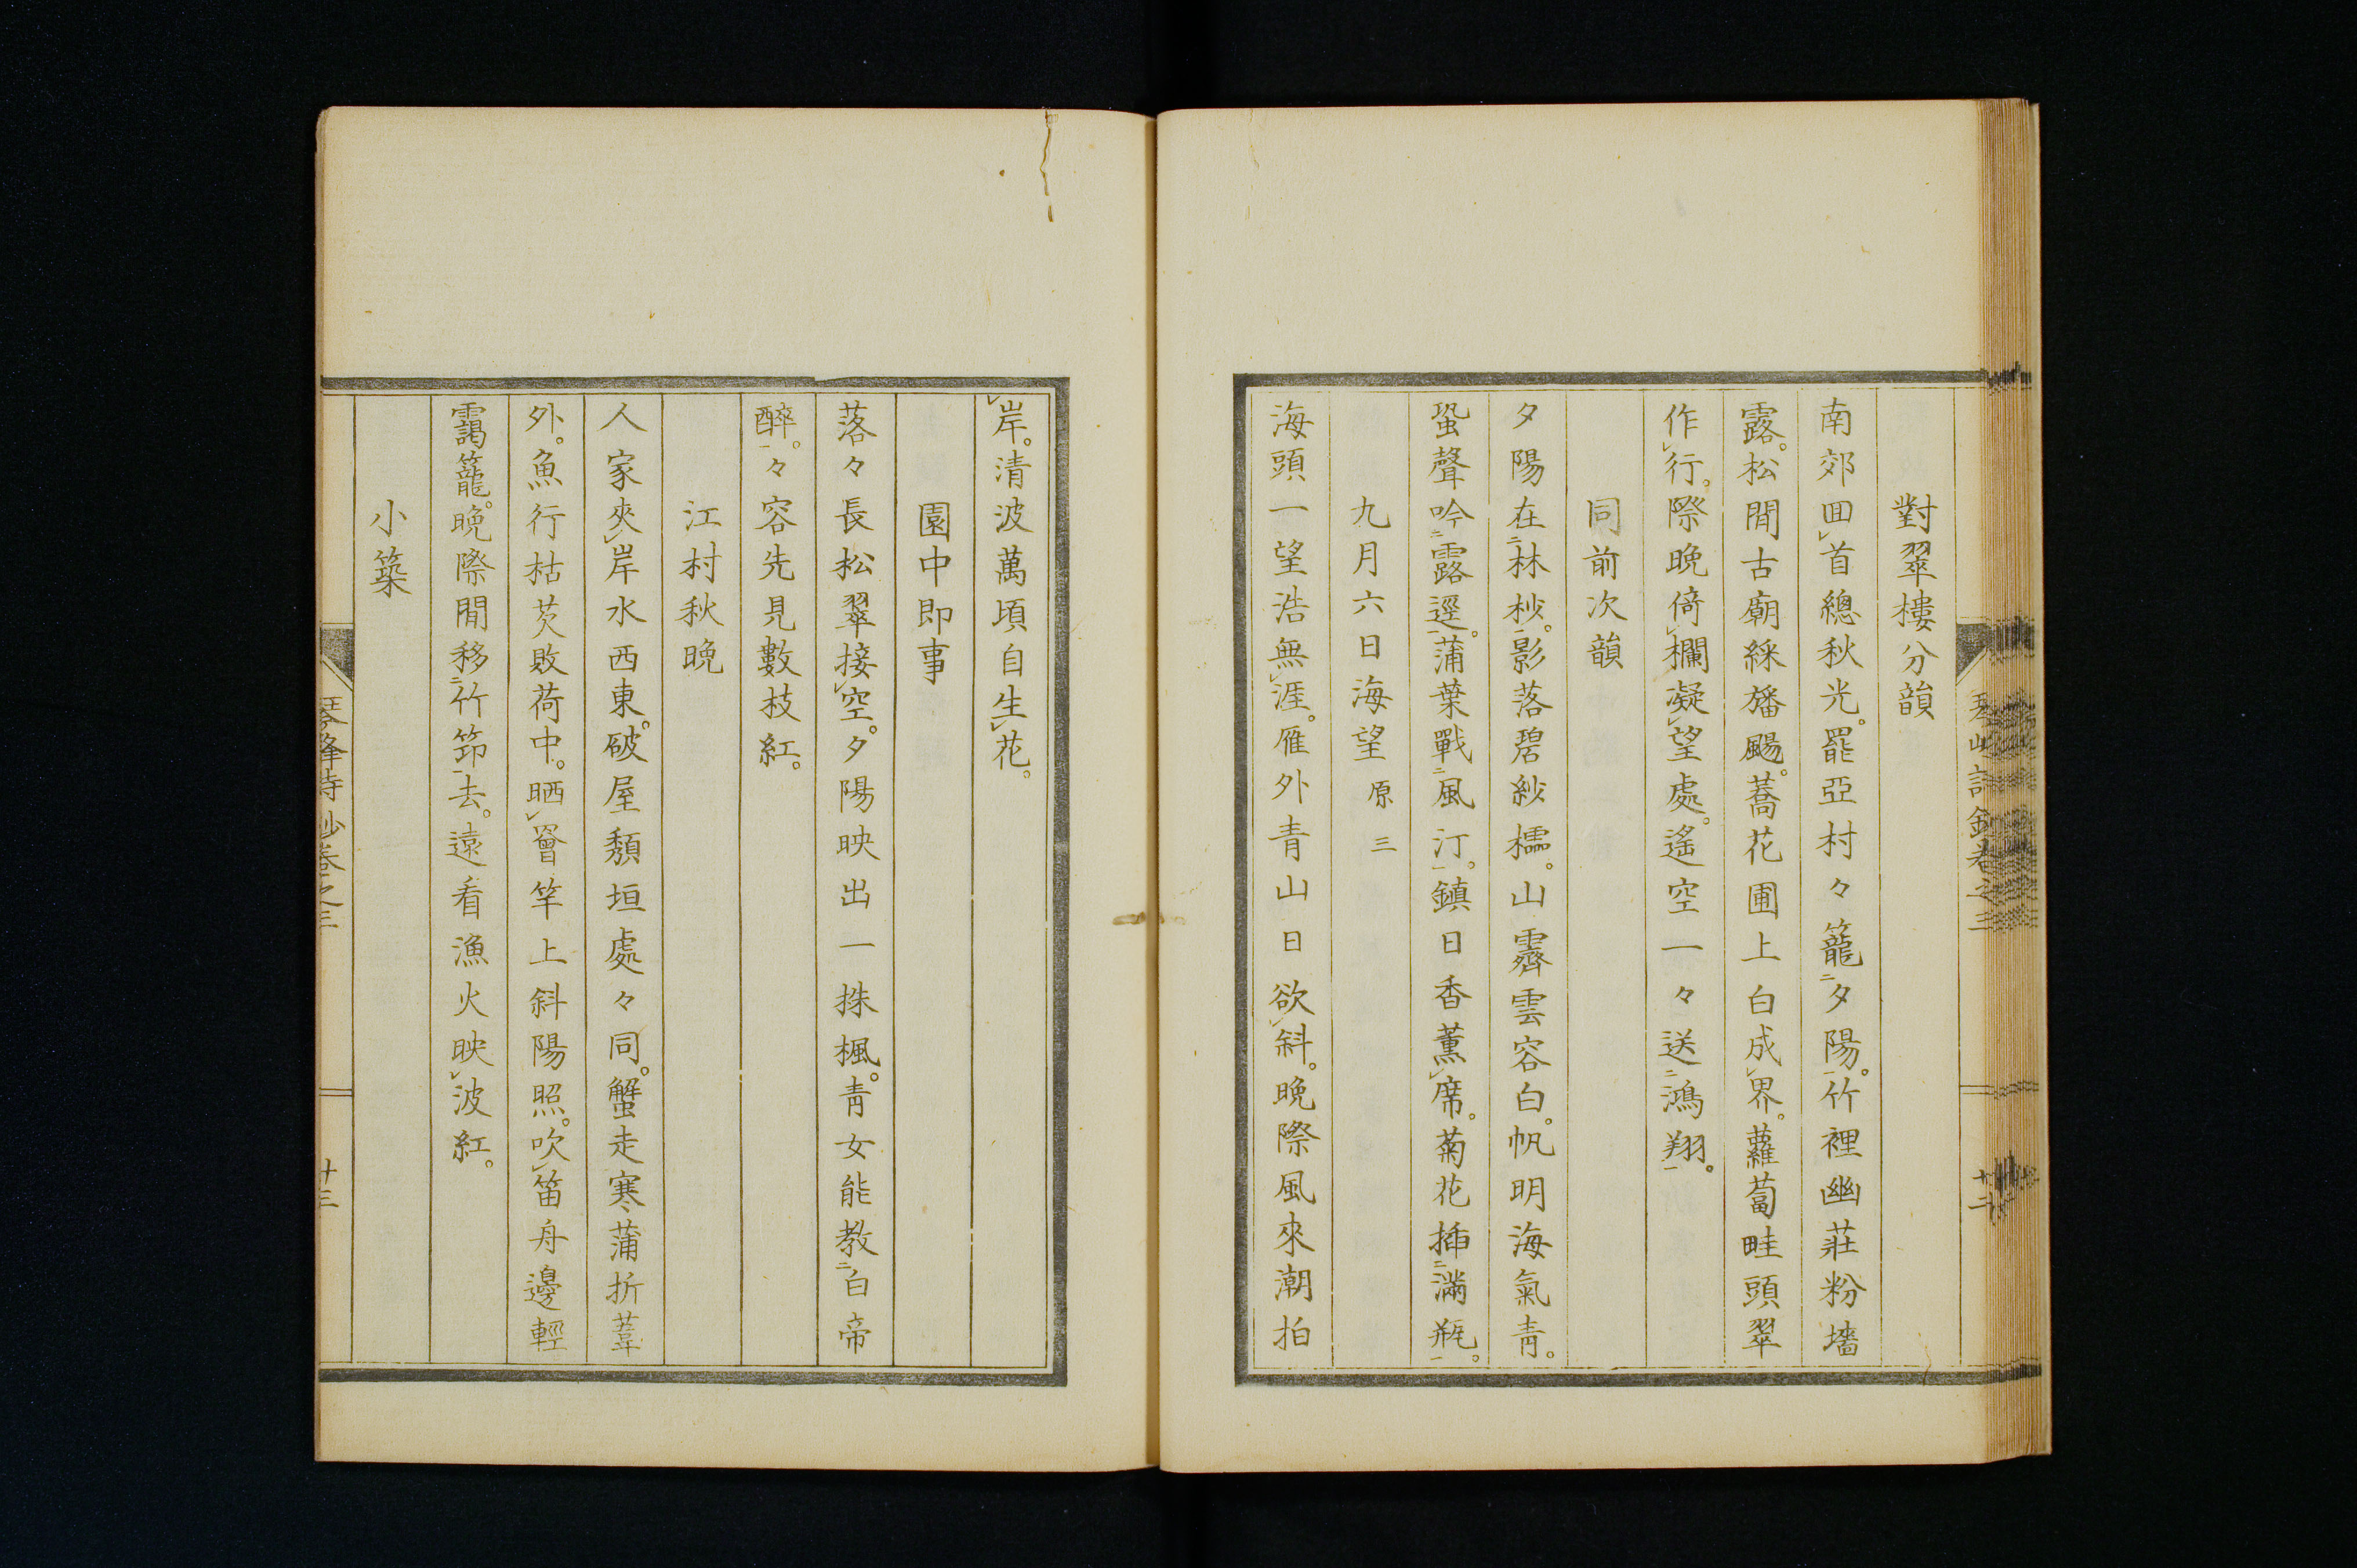 對翠樓分韻
南郊回首總秋光。罷亞村々籠夕陽。竹裡幽莊粉墻
露。松間古廟綵旛颺。蕎花圃上白成界。蘿蔔畦頭翠
作行。際晚倚欄凝望處。遙空一々送鴻翔。
同前次韻
夕陽在林杪。影落碧紗櫺。山霽雲容白。帆明海氣青。
蛩聲吟露逕。蒲葉戰風汀。鎮日香薰席。菊花插滿瓶。
九月六日海望 原三
海頭一望浩無涯。雁外青山日欲斜。晚際風來潮拍
岸。清波萬頃自生花。
園中即事
落々長松翠接空。夕陽映出一株楓。青女能教白帝
醉。々容先見數枝紅。
江村秋晚
人家夾岸水西東。破屋頹垣處々同。蟹走寒蒲折葦
外。魚行枯芡敗荷中。晒罾竿上斜陽照。吹笛舟邊輕
靄籠。晚際閒移竹笻去。遠看漁火映波紅。
小築
琴峰詩鈔卷之三
十三